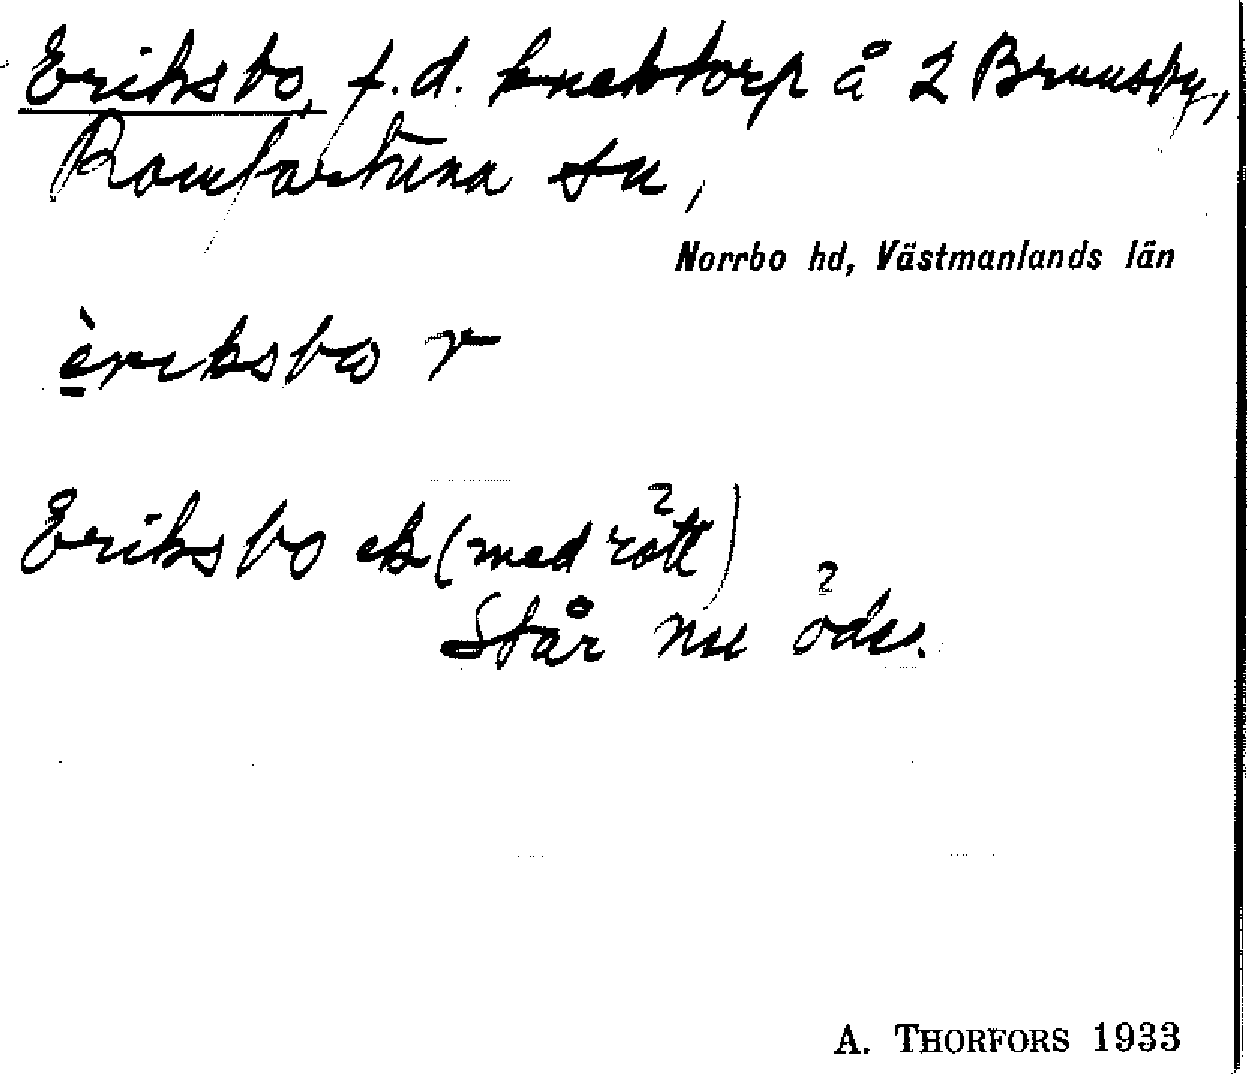 Eriksbo, f.d. knektorp å 2 Brunsby,
Romfartuna sn,
Norrbo hd, Västmanlands län
è̱riksbo r
Eriksbo ek (med rött)
Står nu öde.
A. THORFORS 1933